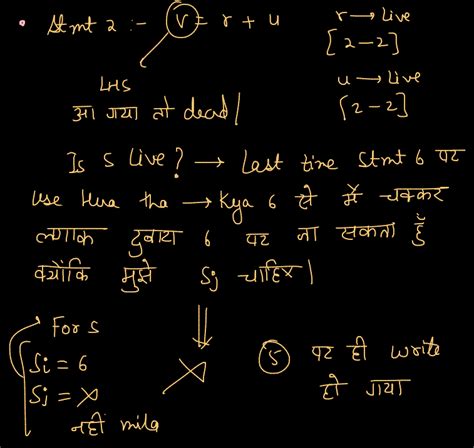 • Stmt 2 :- v = r + u
r → Live
[2-2]
u → Live
[2-2]
LHS
आ गया तो dead |
Is S Live? → Last time Stmt 6 पर
use Hua tha → Kya 6 से मैं चक्कर
लगाके दुबारा 6 पर जा सकता हूँ
क्योंकि मुझे Sj चाहिए |
For S
Si = 6
Sj = X
नहीं mila
X
5 पर ही write
हो गया